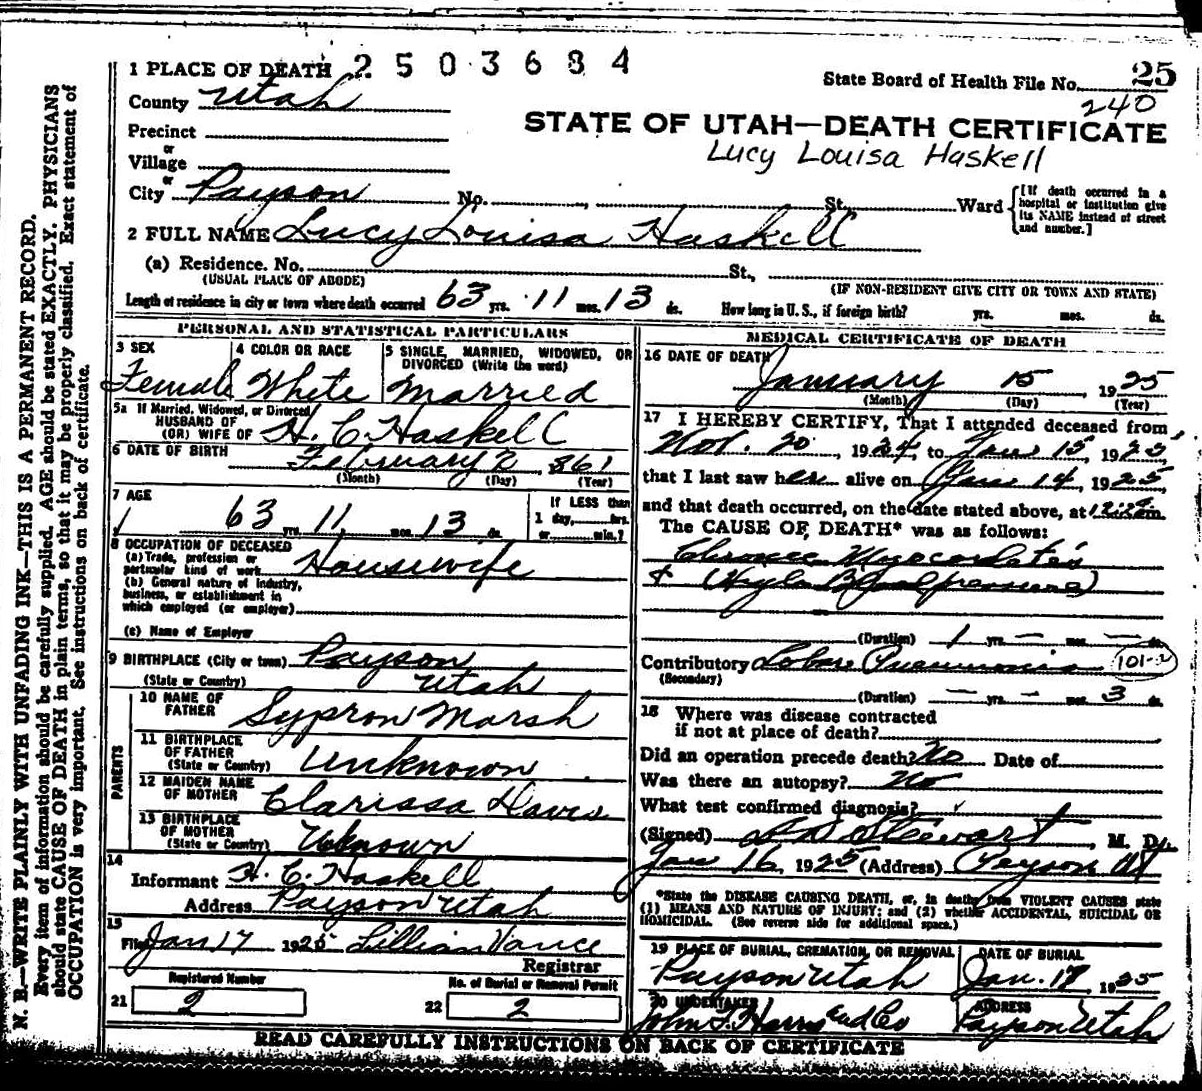 2 5 0 3 6 8 4
1 PLACE OF DEATH
State Board of Health File No. 25
240
County Utah
STATE OF UTAH—DEATH CERTIFICATE
Lucy Louisa Haskell
Precinct
or
Village
or
City Payson No. , St. Ward
[If death occurred in a
hospital or institution give
its NAME instead of street
and number.]
2 FULL NAME Lucy Louisa Haskell
(a) Residence. No. St.,
(USUAL PLACE OF ABODE)
(IF NON-RESIDENT GIVE CITY OR TOWN AND STATE)
Length of residence in city or town where death occurred 63 yrs. 11 mos. 13 ds. How long in U. S., if foreign birth? yrs. mos. ds.
PERSONAL AND STATISTICAL PARTICULARS
3 SEX
Female
4 COLOR OR RACE
White
5 SINGLE, MARRIED, WIDOWED, OR
DIVORCED (Write the word)
Married
5a If Married, Widowed, or Divorced
HUSBAND OF
(OR) WIFE OF H. C. Haskell
6 DATE OF BIRTH February 2 861
(Month) (Day) (Year)
7 AGE
63 yrs. 11 mos. 13 ds.
If LESS than
1 day, hrs.
or min.?
8 OCCUPATION OF DECEASED
(a) Trade, profession or
particular kind of work Housewife
(b) General nature of industry,
business, or establishment in
which employed (or employer)
(c) Name of Employer
9 BIRTHPLACE (City or town) Payson
(State or Country) Utah
PARENTS
10 NAME OF
FATHER Sypron Marsh
11 BIRTHPLACE
OF FATHER
(State or Country) Unknown
12 MAIDEN NAME
OF MOTHER Clarissa
13 BIRTHPLACE
OF MOTHER
(State or Country) Uknown
14
Informant H. C. Haskell
Address Payson Utah
15
Filed Jan 17 1925 Lillian Vance
Registrar
Registered Number
21 2
No. of Burial or Removal Permit
22 2
MEDICAL CERTIFICATE OF DEATH
16 DATE OF DEATH
January 15 1925
(Month) (Day) (Year)
17 I HEREBY CERTIFY, That I attended deceased from
Nov. 20, 1924, to Jan 15, 1925,
that I last saw her alive on Jan 14, 1925,
and that death occurred, on the date stated above, at
The CAUSE OF DEATH* was as follows:
Chronic Myocordites
& (High Blood pressure)
(Duration) 1 yrs. — mos. — ds.
Contributory Lobar Pneumonia 101-2
(Secondary)
(Duration) — yrs. — mos. 3 ds.
18 Where was disease contracted
if not at place of death?
Did an operation precede death? No Date of
Was there an autopsy? No
What test confirmed diagnosis?
(Signed) Stewart, M. D.
Jan 16, 1925 (Address) Payson Ut
*State the DISEASE CAUSING DEATH, or, in deaths from VIOLENT CAUSES state
(1) MEANS AND NATURE OF INJURY; and (2) whether ACCIDENTAL, SUICIDAL OR
HOMICIDAL. (See reverse side for additional space.)
19 PLACE OF BURIAL, CREMATION, OR REMOVAL
Payson Utah
DATE OF BURIAL
Jan. 17, 1925
20 UNDERTAKER
John F. Harris and Co
ADDRESS
Payson Utah
READ CAREFULLY INSTRUCTIONS ON BACK OF CERTIFICATE
N. B.—WRITE PLAINLY WITH UNFADING INK—THIS IS A PERMANENT RECORD.
Every item of information should be carefully supplied. AGE should be stated EXACTLY. PHYSICIANS
should state CAUSE OF DEATH in plain terms, so that it may be properly classified. Exact statement of
OCCUPATION is very important. See instructions on back of certificate.